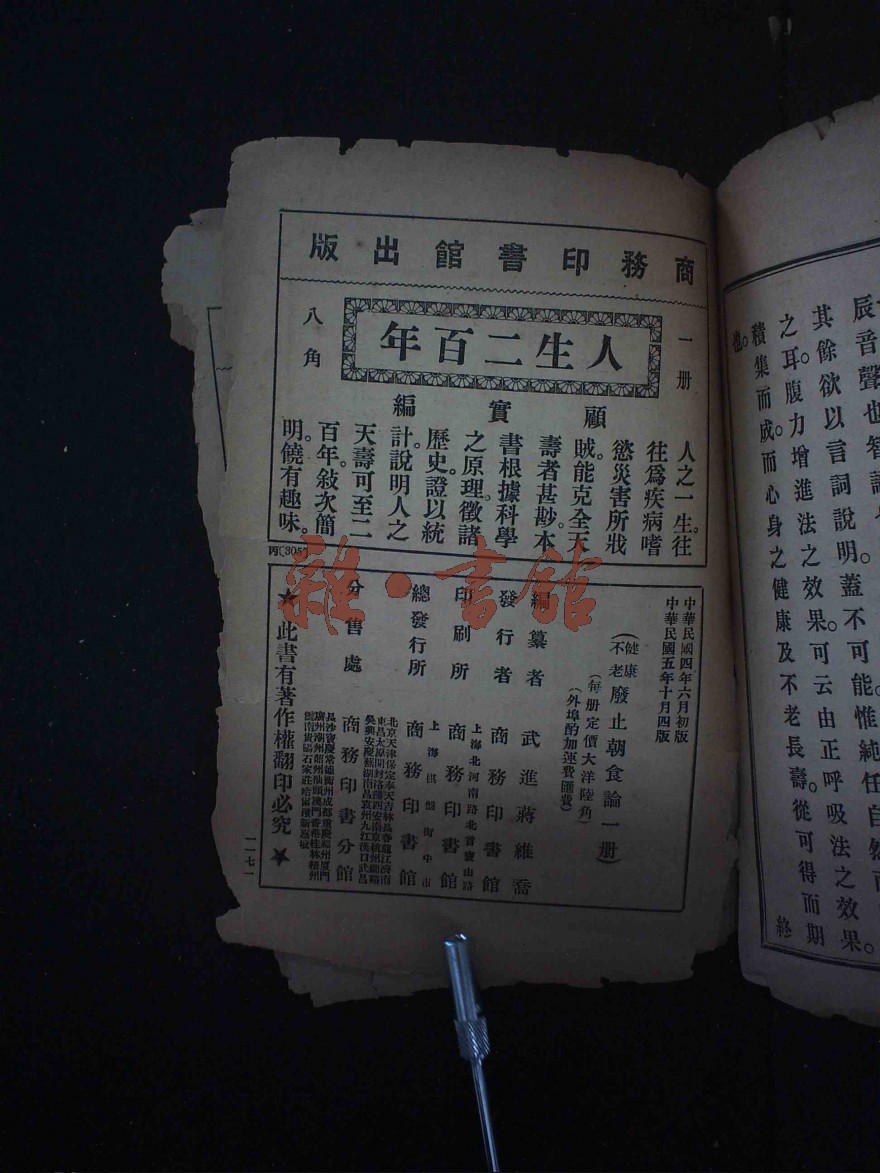 商務印書館出版
一册
人生二百年
八角
顧實編
人之一生。往
往爲疾病嗜
慾災害所戕
賊。能克全天
壽者甚尠。本
書根據科學
之原理。徵諸
歷史。證以統
計。說明人之
天壽可至二
百年。敍次簡
明。饒有趣味。
丙(305)
中華民國四年六月初版
中華民國五年十月四版
(健康不老)廢止朝食論一册)
(每册定價大洋陸角)
(外埠酌加運費匯費)
編纂者 武進蔣維喬
發行者 商務印書館
上海北河南路北首寶山路
印刷所 商務印書館
上海棋盤街中市
總發行所 商務印書館
北京天津保定奉天吉林長春龍江濟南
東昌太原開封洛陽西安南京杭州蘭谿
吳興安慶蕪湖南昌袁州九江漢口武昌
分售處 商務印書分館
長沙寶慶常德衡州成都重慶福州廈門
廣州潮州韶州汕頭澳門香港桂林梧州
雲南貴陽石家莊哈爾濱新嘉坡
★此書有著作權翻印必究★
一一七一
雜·書館
辰音聲也
其餘欲以言詞說明。蓋不可能。惟純任自然而
之耳。腹力增進法之效果。可云由正呼吸法之效果。
積集而成。而心身之健康及不老長壽。從可得而期
也。
終